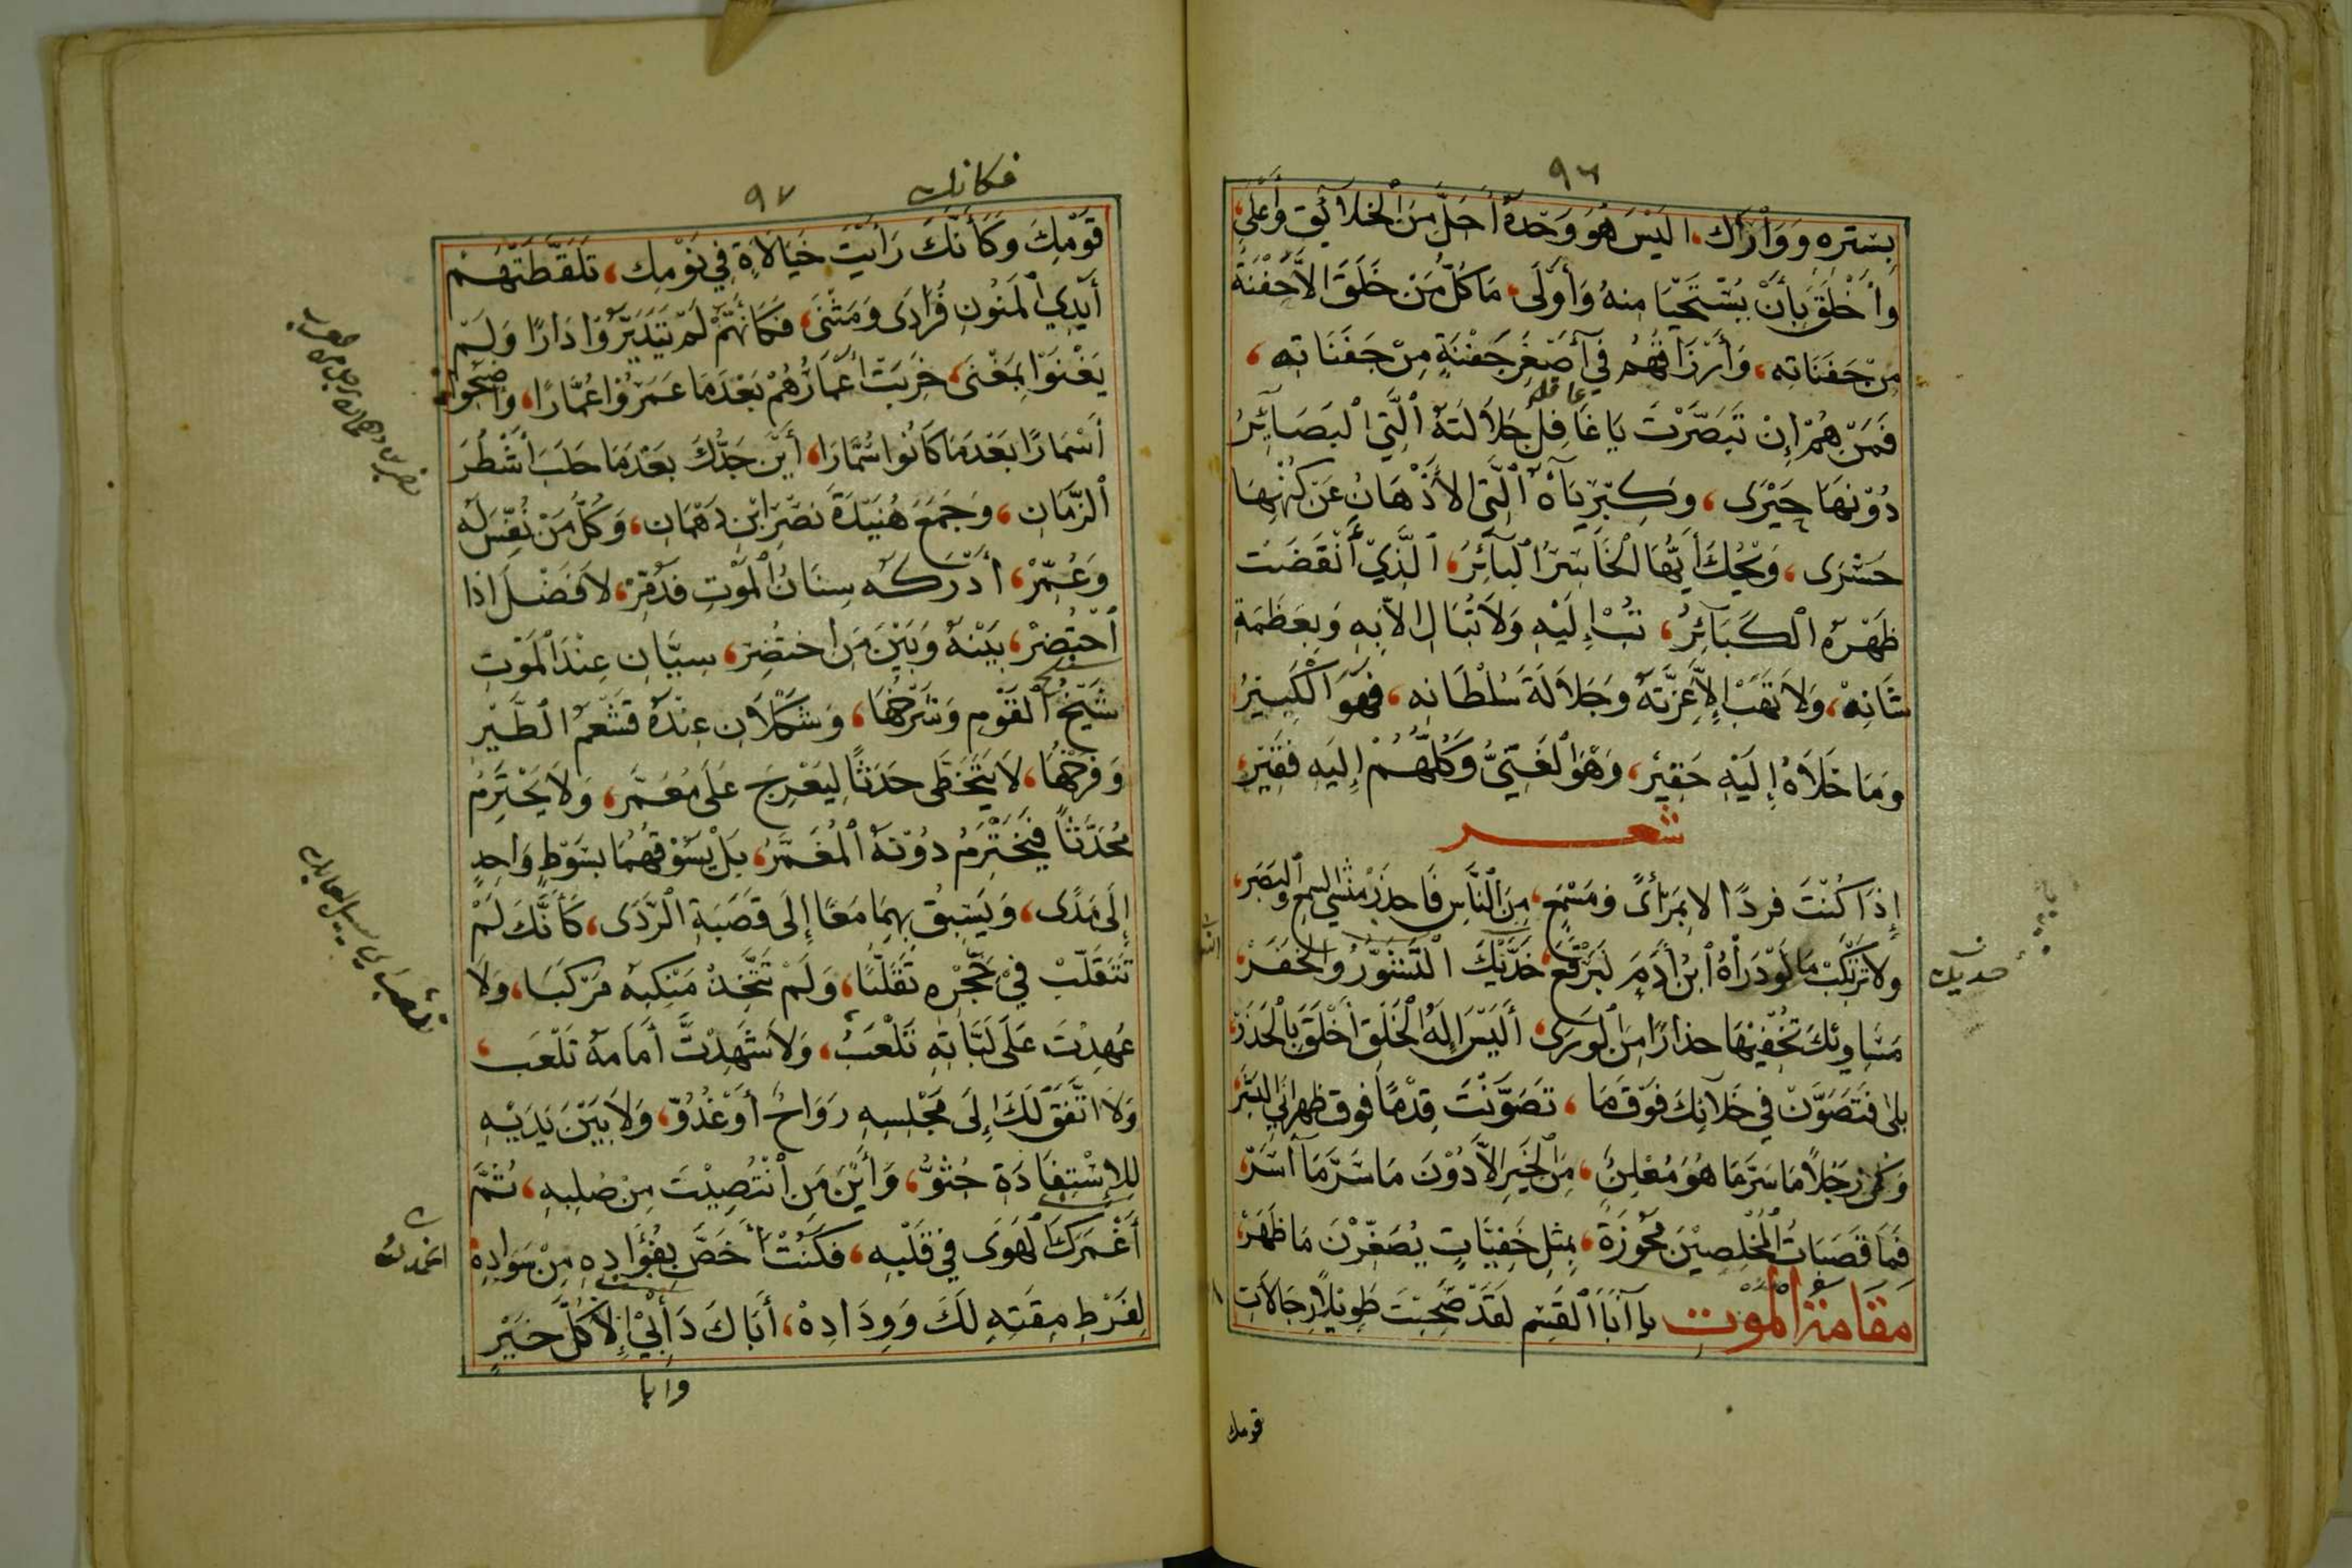 ٩٦
بِسَتره وَوَارَاك، اليْسَ هُوَ وَحْدهُ اَجَلَّ مِنَ الْخَلَائِق وَأَعْلى،
وأَخْلَقَ بِأَنْ يُسْتَحْيَا منهُ وَأَوْلَى، مَا كُلُّ مَنْ خَلَقَ الاَّ حَفْنَةً
مِنْ حَفَنَاتِه، وَأَرْزَاقُهُم في أَصْغَرِ جَفْنَةٍ مِنْ جَفَنَاتِه،
فَمَنْ هُمْ إِنْ تَبَصَّرْتَ يَا غَافِلُ جَلَالَتَهُ الَّتِي الْبَصَائِرُ
عاقل
دُوْنهَا حَيْرَى، وَكِبْرِيَاَهُ الَّتي الأَذْهَانُ عَنْ كُنْهِهَا
حَسْرَى، وَيْحُكَ أَيُّهَا الْخَاسِرُ الْبَائِرُ، الَّذِيْ أَنْقَضَتْ
ظَهْرَهُ الْكَبَائِرُ، تُبْ إِلَيْهِ وَلَا تُبَالِ الاّ بِه وَبِعَظَمَةِ
شَانِهْ، وَلَا تَهَبْ إِلاَّ عِزَّتَهُ وَجَلَالَةَ سُلْطَانِه، فَهُوَ الْكَبِيْرُ
وَمَا خَلَاهُ إِلَيْهِ حَقِيْر، وَهْوَ الْغَنِيُّ وَكُلُّهُمْ إِلَيْهِ فَقِيْر،
شعر
إِذَا كُنْتَ فَردًا لا بِمَرْأىً وَمَسْمَعٍ، مِنَ النَّاسِ فَاحذَرْ مُنْشِئَ السمعِ وَالبَصَر،
ولا تَرْتَكِبْ مَا لَوْ دَرَاهُ ابْنُ أَدَمَ، لَبَرْقَعَ خَدَّيْكَ التَّشَوُّرُ وَالْخَفَرْ،
خديك
مَسَاوِئكَ تُخْفِيْهَا حذارًا مِنَ الْوَرَى، أَلَيْسَ إِلهُ الْخَلْقِ أَخْلَقَ بِالْحَذَرْ،
بلى فتَصَوَّنْ في خَلَائِكَ فَوْقَ مَا، تَصَوَّنْتَ قِدْمًا فوق ظهرانَي البَشَر
وَكُنْ رَجُلًا مَا سَرَّ مَا هُوَ مُعْلِنٌ، مِنَ الْخَيْرِ الاَّ دُوْنَ مَا سَرَّ مَا أَسَرّ،
فَمَا قَصَبَاتُ الْمُخْلِصِيْنَ مُحْوَزَةً، بِمثِلِ خَفِيَّاتٍ يُصَغِّرْنَ مَا ظَهَرْ،
مقَامَةُ الْمَوْت يا أَبَا الْقَسِم لَقَدْ صَحِبْتَ طَوِيْلًا رِجَالَات
قومك
٩٧
فكانك
قَوْمِكَ وَكَأَنَّكَ رَأَيْتَ خَيَالَاةٍ فِي نَوْمِك، تَلَقَّطَتْهَمْ
أَيْدِي الْمَنُونِ فُرَادَى وَمَثْنَى، فَكَانَهُمْ لَمْ يَتَدَيَّرُوْا دَارًا وَلَمْ
يَغْنَوْا بِمَغْنَى، خَرِبَتْ أَعْمَارُهُمْ بَعْدَمَا عَمَرُوْا عُمَّارًا، وَاصْبَحُوا
أَسْمَارًا بَعْدَمَا كَانُوا سُمَّارًا، أَيْنَ جَدُّكَ بَعْدَمَا حَلَبَ أَشْطُرَ
الزَّمَانِ، وَجَمَعَ هُنَيْدَةَ نَصْرِ ابْنِ دَهْمَان، وَكُلُّ مَنْ نُفِّسَ لَه
وَعُمِّرْ، أَدْرَكَه سِنَانُ الْمَوْتِ فَدُمِّرْ، لاَ فَضْلَ اذا
احْتُضِرْ، بَيْنَهُ وَبَيْنَ مَنِ اخْتُضِرَ، سِيَّانِ عِنْدَ الْمَوْتِ
شَيْخُ الْقَوْمِ وَشَرْخُهَا، وَشَكْلَانِ عِنْدَهُ قَشْعَمُ الطَّيْرِ
وَفَرْخُهَا، لَا يَتَخَطَّى حَدَثًا لِيَعْرِجَ عَلَى مُعَمَّر، وَلَا يَخْتَرِمُ
مُحْدَثًا فَيَخْتَرِمُ دُوْنَهُ الْمُعَمَّرُ، بَلْ يَسُوْقُهُمَا بِسَوْطٍ وَاحدٍ
إِلَى مَدًى، وَيَسْبِقُ بِهِمَا مَعًا إِلَى قَصَبَةِ الرَّدَى، كَأَنَّكَ لَمْ
تَتَقَلَّبْ فِيْ حَجْرِه تَقَلُّبًا، وَلَمْ تَتَّخِذْ مَنْكِبَه مَرْكَبًا، وَلَا
عُهِدْتَ عَلَى لَبَّاتِهِ تَلْعَبُ، وَلَا شَهِدْتَّ أَمَامَهُ تَلْعَب،
وَلَا اتَّفَقَ لَكَ إِلَى مَجْلِسِهِ رَوَاحٌ أَوْ غُدُوّ، وَلَا بَيْنَ يَدَيْهِ
لِلِاسْتِفَادَةِ جُثُوٌّ، وَأَيْنَ مَنِ انْتُضِيْتَ مِنْ صُلْبِهِ، ثُمَّ
أَعْمَرَكَ الْهَوَى فِي قَلْبِهِ، فَكُنْتَ أَخَصَّ بِفُؤَادِهِ مِنْ سَوَادِهِ
لِفَرْطِ مِقَتِهِ لَكَ وَوِدَادِهْ، أَبَاكَ دَأْبِيْ إِلَّا كُلَّ خَيْرٍ
وابا